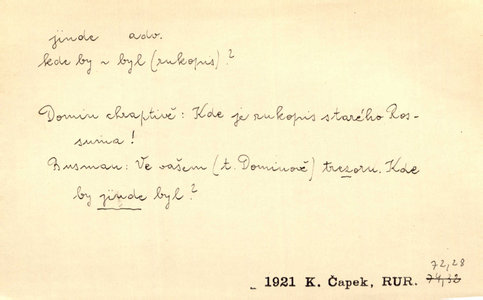 jinde adv.
kde by ~ byl (rukopis)?
Domin chraptivě: Kde je rukopis starého Ros-
suma!
Busman: Ve vašem (t. Dominově) trezoru. Kde
by jinde byl?
72,28
1921 K. Čapek, RUR. 74,32